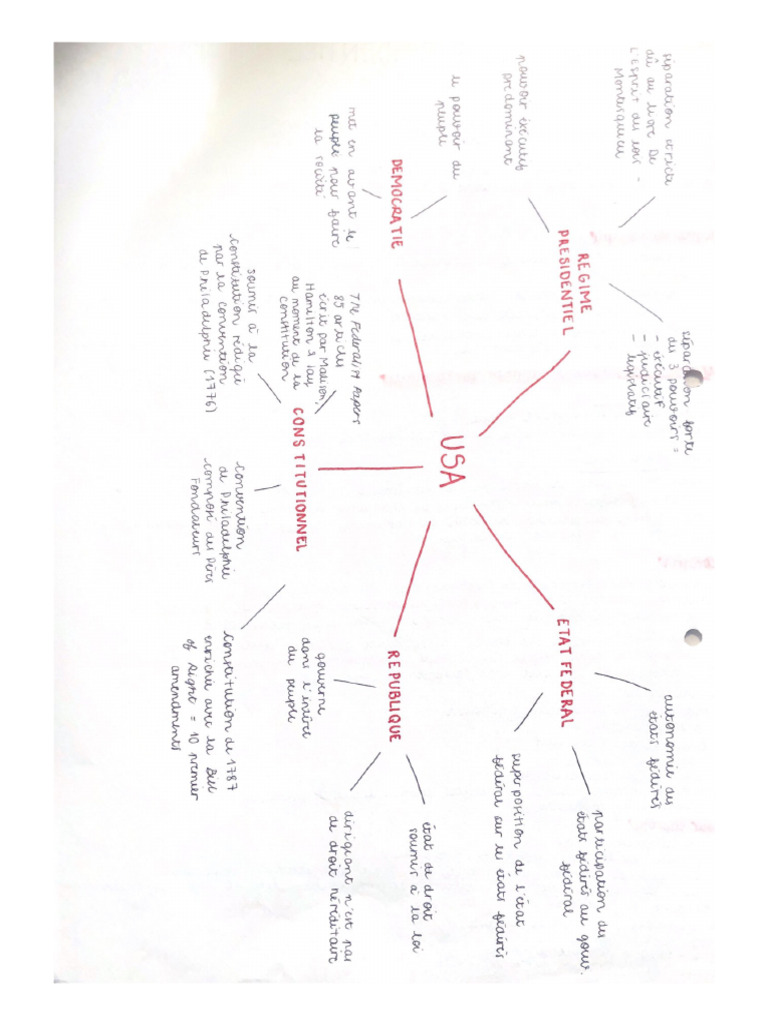 USA
REGIME
PRESIDENTIEL
séparation stricte
dû au livre De
l'Esprit des lois -
Montesquieu
pouvoir éxécutif
prédominant
séparation forte
des 3 pouvoirs =
- éxécutif
- judiciaire
- législatif
DEMOCRATIE
le pouvoir du
peuple
met en avant le
peuple pour faire
la société
CONSTITUTIONNEL
The Federalist Papers
85 articles
écrit par Madison,
Hamilton & Jay
au moment de la
constitution
soumis à la
constitution rédigé
par la Convention
de Philadelphie (1776)
convention
de Philadelphie
composé des Pères
Fondateurs
constitution de 1787
enrichie avec la Bill
of Right = 10 premier
amendments
REPUBLIQUE
gouverne
dans l'intêre
du peuple
dirigeant n'est pas
de droit héréditaire
état de droit
soumis à la loi
ETAT FEDERAL
autonomie des
états fédérés
participation des
états fédérés au gouv.
fédéral
superposition de l'état
fédéral sur les états fédérés